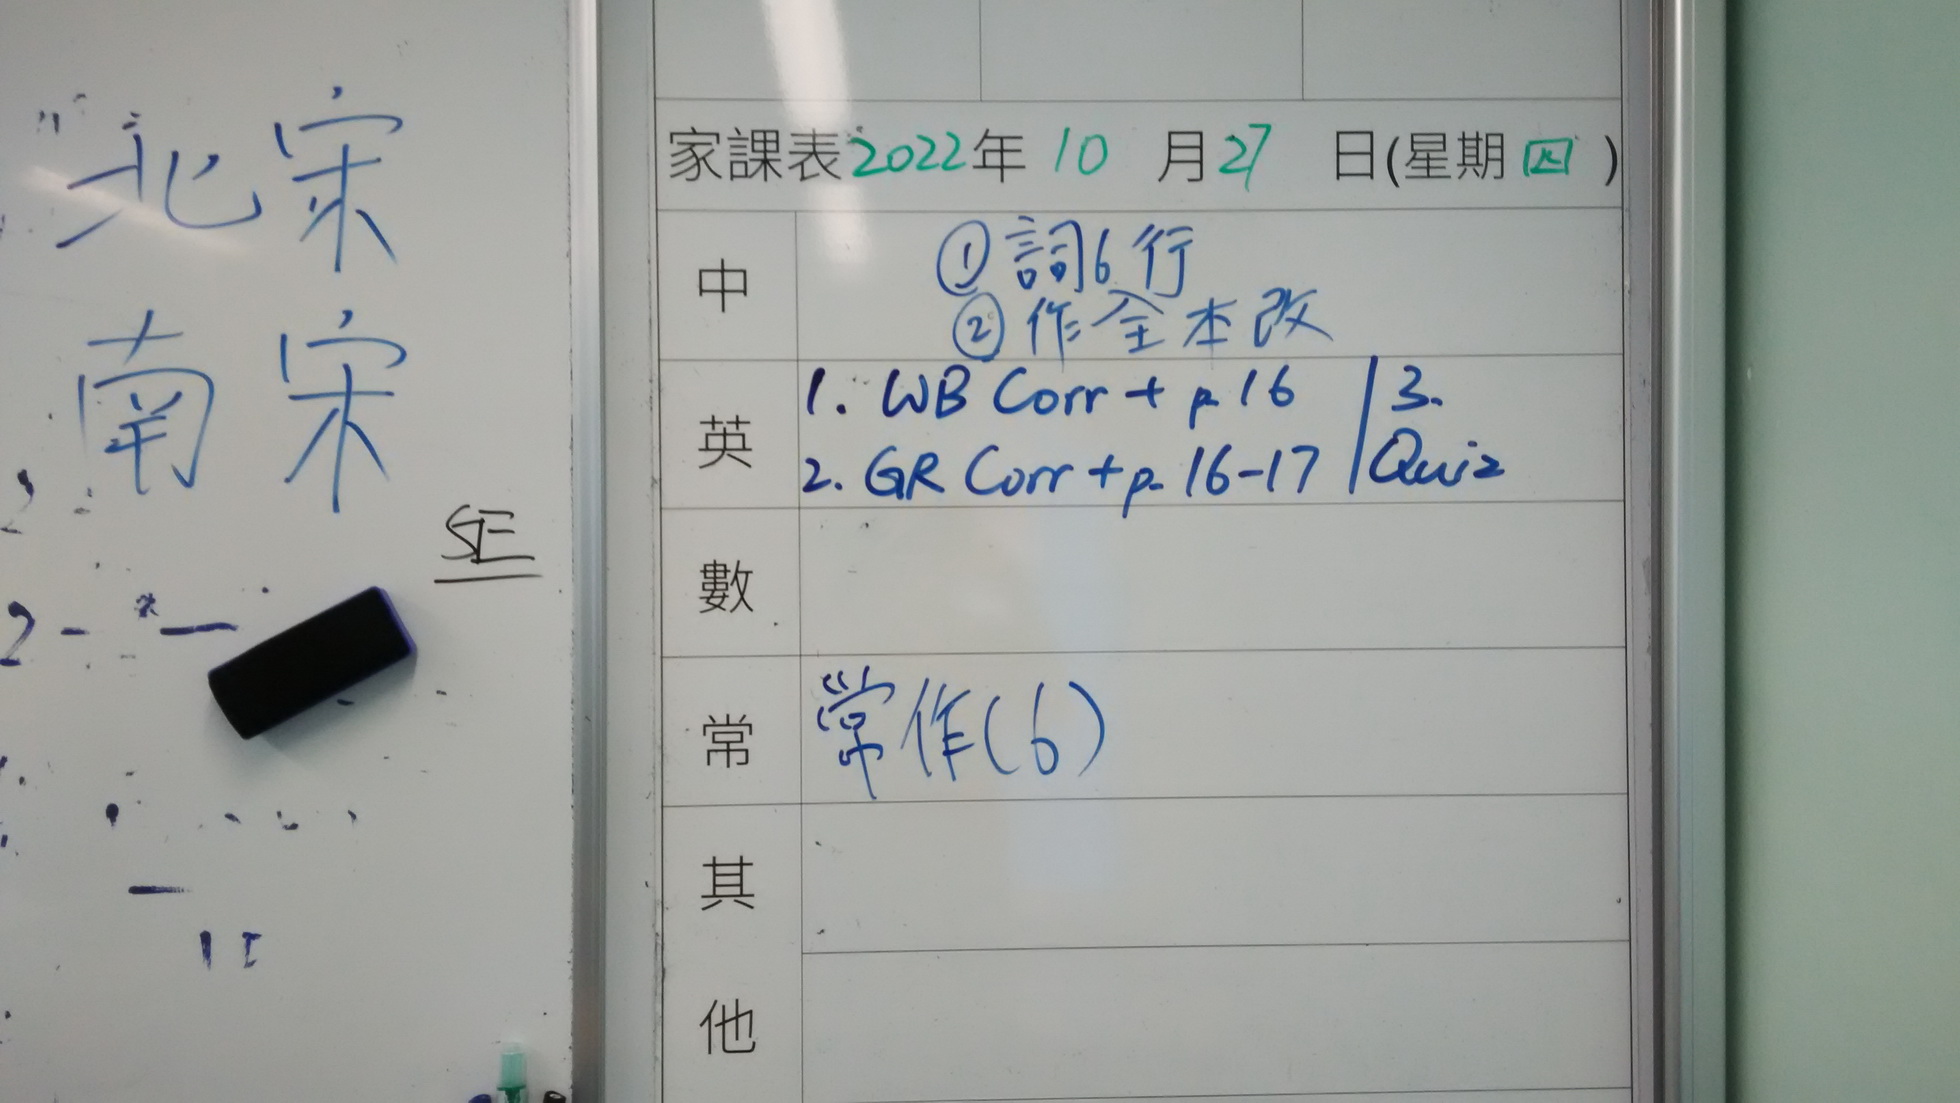 北宋
南宋
5E
家課表2022年10月27日(星期四)
中
①詞6行
②作全本改
英
1. WB Corr + p.16
2. GR Corr + p.16-17
3.
Quiz
數
常
常作(6)
其
他